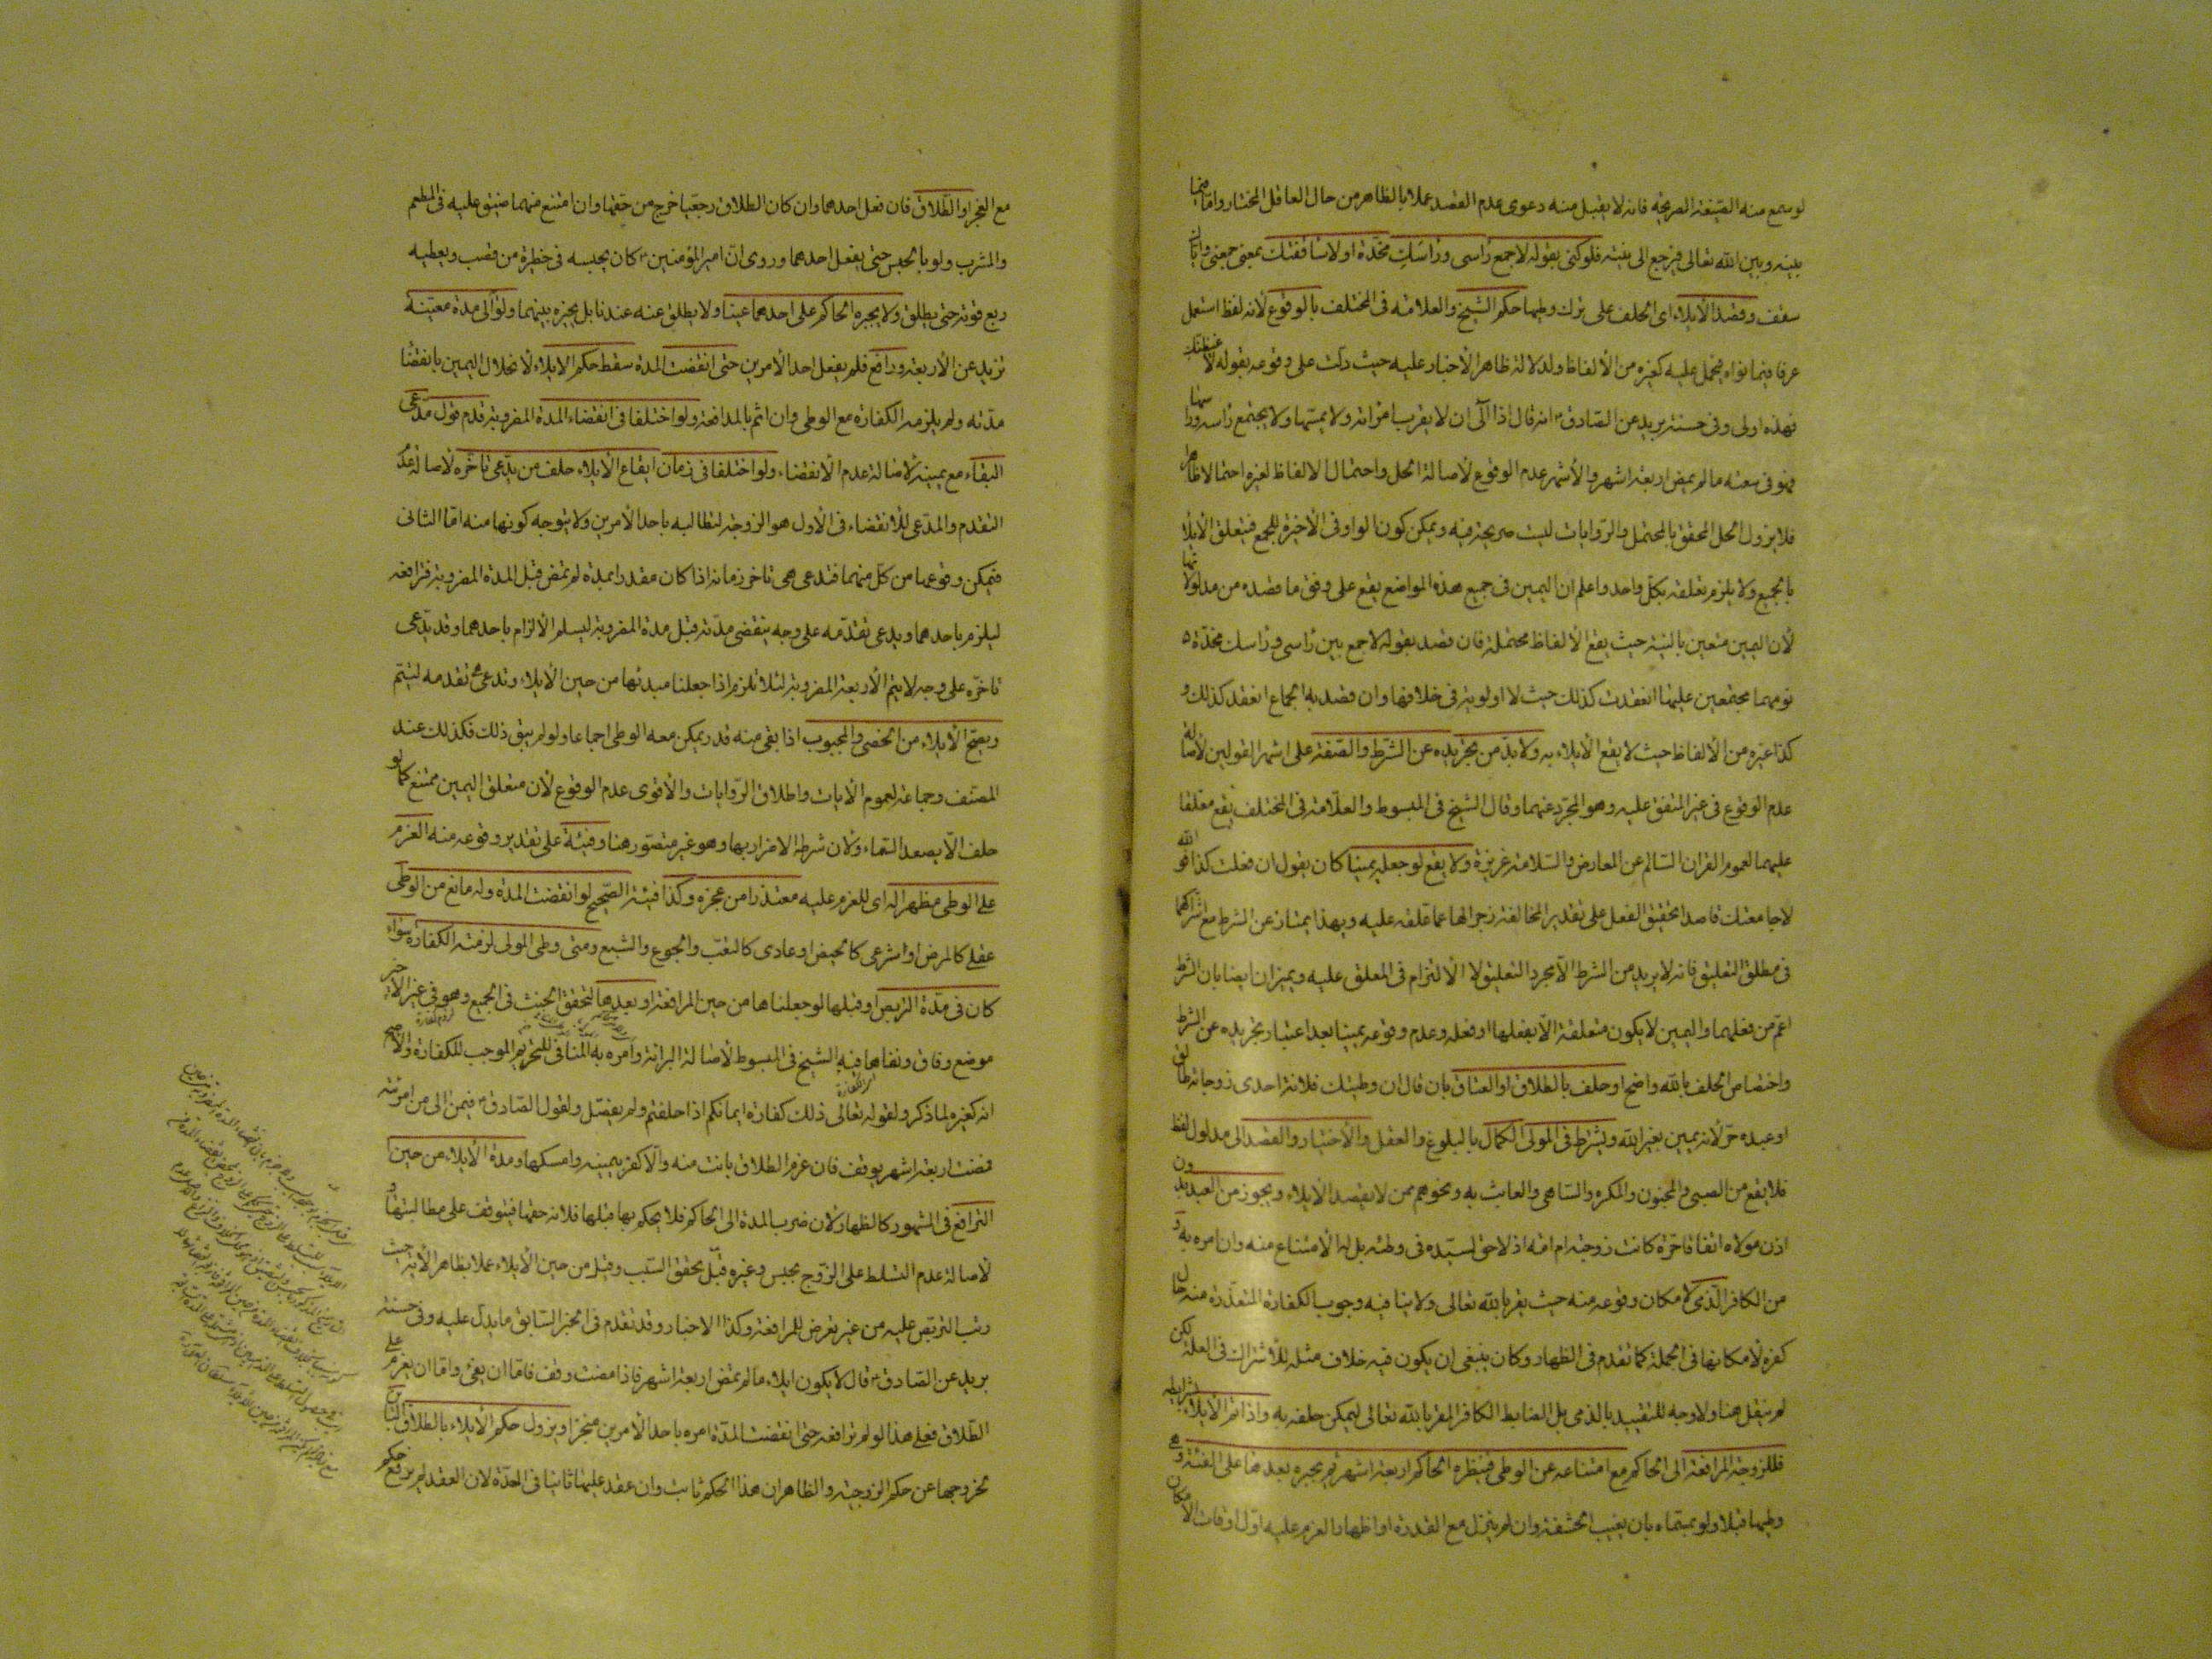 لو سمع منه الصيغة الصريحة فانه لا يقبل منه دعوى عدم القصد عملا بالظاهر من حال العاقل المختار واما فيما
بينه وبين الله تعالى فيرجع الى نيته فلو كنى بقوله لا جمع راسى وراسك مخدة او لا ساقفتك بمعنى جمعنى واياك
سقف وقصد الايلاء اى الحلف على ترك وطيها حكم الشيخ والعلامة فى المختلف بالوقوع لانه لفظ استعمل
عرفا فيما نواه فيحمل عليه كغيره من الالفاظ ولدلالة ظاهر الاخبار عليه حيث دلت على وقوعه بقوله لا غيظنك
فهذه اولى وفى حسنة بريد عن الصادق انه قال اذا الى ان لا يقرب امراته ولا يمسها ولا يجتمع راسه وراسها
فهو فى سعة ما لم يمض اربعة اشهر والاشهر عدم الوقوع لاصالة الحل واحتمال الالفاظ لغيره احتمالا ظاهرا
فلا يزول الحل المحقق بالمحتمل والروايات ليست صريحة فيه ويمكن كون الواو فى الاخيرة للجمع فيتعلق الايلاء
بالجميع ولا يلزم تعلقه بكل واحد واعلم ان اليمين فى جميع هذه المواضع يقع على وفق ما قصده من مدلولاتها
لان اليمين متعين بالنية حيث يقع الالفاظ محتملة فان قصد بقوله لا جمع بين راسى وراسك مخدة
نومهما مجتمعين عليها انعقدت كذلك حيث لا اولوية فى خلافها وان قصد به الجماع انعقد كذلك و
كذا غيره من الالفاظ حيث لا يقع الايلاء به ولا بد من تجريده عن الشرط والصفة على اشهر القولين لاصالة
عدم الوقوع فى غير المتفق عليه وهو المجرد عنهما وقال الشيخ فى المبسوط والعلامة فى المختلف يقع معلقا
عليهما لعموم القران السالم عن المعارض والسلامة غريزة ولا يقع لو جعله يمينا كان يقول ان فعلت كذا فو الله
لا جامعتك قاصدا تحقيق الفعل على تقدير المخالفة زجرا لها عما علقه عليه وبهذا يمتاز عن الشرط مع اشتراكهما
فى مطلق التعليق فانه لا يريد من الشرط الا مجرد التعليق لا الالتزام فى المعلق عليه ويميزان ايضا بان الشرط
اعم من فعلهما واليمين لا يكون متعلقة الا بفعلها او فعله وعدم وقوعه يمينا بعد اعتبار تجريده عن الشرط
واختصاص الحلف بالله واضح او حلف بالطلاق او العتاق بان قال ان وطيتك فلانة احدى زوجاته طالق
او عبده حر لانه يمين بغير الله ويشترط فى المولى الكمال بالبلوغ والعقل والاختيار والقصد الى مدلول لفظه
فلا يقع من الصبى والمجنون والمكره والساهى والعابث به ونحوهم ممن لا يقصد الايلاء ويجوز من العبد بدون
اذن مولاه اتفاقا حرة كانت زوجته ام امة اذ لا حق لسيده فى وطئه بل له الامتناع منه وان امره به و
من الكافر الذمى لامكان وقوعه منه حيث يقر بالله تعالى ولا ينافيه وجوب الكفارة المتعذرة منه حال
كفره لامكانها فى الجملة كما تقدم فى الظهار وكان ينبغى ان يكون فيه خلاف مثله للاشتراك فى العلة لكن
لم ينقل هنا ولا وجه للتقييد بالذمى بل الضابط الكافر المقر بالله تعالى ليمكن حلفه به واذا تم الايلاء بشرايطه
فللزوجة المرافعة الى الحاكم مع امتناعه عن الوطى فينظره الحاكم اربعة اشهر ثم يجبره بعدها على الفئة وهى
وطيها قبلا ولو بمسماه بان يغيب الحشفة وان لم ينزل مع القدرة او اظهار العزم عليه اول اوقات الامكان
مع العجز او الطلاق فان فعل احدهما وان كان الطلاق رجعيا خرج من حقها وان امتنع منهما ضيق عليه فى المطعم
والمشرب ولو بالحبس حتى يفعل احدهما وروى ان امير المؤمنين كان يحبسه فى حظيرة من قصب ويعطيه
ربع قوته حتى يطلق ولا يجبره الحاكم على احدهما عينا ولا يطلق عنه عندنا بل يجبره بينهما ولو الى مدة معينة
تزيد عن الاربعة ورافع فلم يفعل احد الامرين حتى انقضت المدة سقط حكم الايلاء لانحلال اليمين بانقضاء
مدته ولم يلزمه الكفارة مع الوطى وان اثم بالمدافعة ولو اختلفا فى انقضاء المدة المضروبة قدم قول مدعى
البقاء مع يمينه لاصالة عدم الانقضاء ولو اختلفا فى زمان ايقاع الايلاء حلف من يدعى تاخره لاصالة عدم
التقدم والمدعى للانقضاء فى الاول هو الزوجة لتطالبه باحد الامرين ولا يتوجه كونها منه اما الثانى
فيمكن وقوعها من كل منهما فتدعى هى تاخر زمانه اذا كان مقدرا بمدة لم تمض قبل المدة المضروبة فترافعه
ليلزم باحدهما ويدعى تقدمه على وجه ينقضى مدته قبل مدة المضروبة ليسلم الالزام باحدهما وقد يدعى
تاخره على وجه لا يتم الاربعة المضروبة لئلا تلزم اذا جعلنا مبدئها من حين الايلاء وتدعى هى تقدمه ليتم
ويصح الايلاء من الخصى والمجبوب اذا بقى منه قدر يمكن معه الوطى اجماعا ولو لم يبق ذلك فكذلك عند
المصنف وجماعة لعموم الايات واطلاق الروايات والاقوى عدم الوقوع لان متعلق اليمين ممتنع كما لو
حلف الا يصعد السماء ولان شرطه الاضرار بها وهو غير متصور هنا وفيئة على تقدير وقوعه منه العزم
على الوطى مظهرا له اى للعزم عليه معتذرا من عجزه وكذا فيئة الصحيح لو انقضت المدة وله مانع من الوطى
عقلى كالمرض او شرعى كالحيض او عادى كالتعب والجوع والشبع ومتى وطى المولى لزمته الكفارة سواء
كان فى مدة التربص او قبلها لو جعلناها من حين المرافعة او بعدها لتحقق الحنث فى الجميع وهو فى غير الاخير
موضع وفاق ونفاها فيه الشيخ فى المبسوط لاصالة البرائة وامره به المنافى للتحريم الموجب للكفارة والاصح
انه كغيره لما ذكر ولقوله تعالى ذلك كفارة ايمانكم اذا حلفتم ولم يفصل ولقول الصادق فيمن الى من امرئته
فمضت اربعة اشهر يوقف فان عزم الطلاق بانت منه والا كفر يمينه وامسكها ومدة الايلاء من حين
الترافع فى المشهور كالظهار لان ضرب المدة الى الحاكم فلا يحكم بها قبلها فلانه حقها فيتوقف على مطالبتها و
لاصالة عدم التسلط على الزوج بحبس وغيره قبل تحقق السبب وقيل من حين الايلاء عملا بظاهر الاية حيث
رتب التربص عليه من غير تعرض للمرافعة وكذا الاخبار وقد تقدم فى الخبر السابق ما يدل عليه وفى حسنة
بريد عن الصادق قال لا يكون ايلاء ما لم تمض اربعة اشهر فاذا مضت وقف فاما ان يفئ واما ان يعزم على
الطلاق فعلى هذا لو لم ترافعه حتى انقضت المدة امره باحد الامرين منجزا ويزول حكم الايلاء بالطلاق البائن
لخروجها عن حكم الزوجية والظاهر ان هذا الحكم ثابت وان عقد عليها ثانيا فى العدة لان العقد لم يرفع حكم